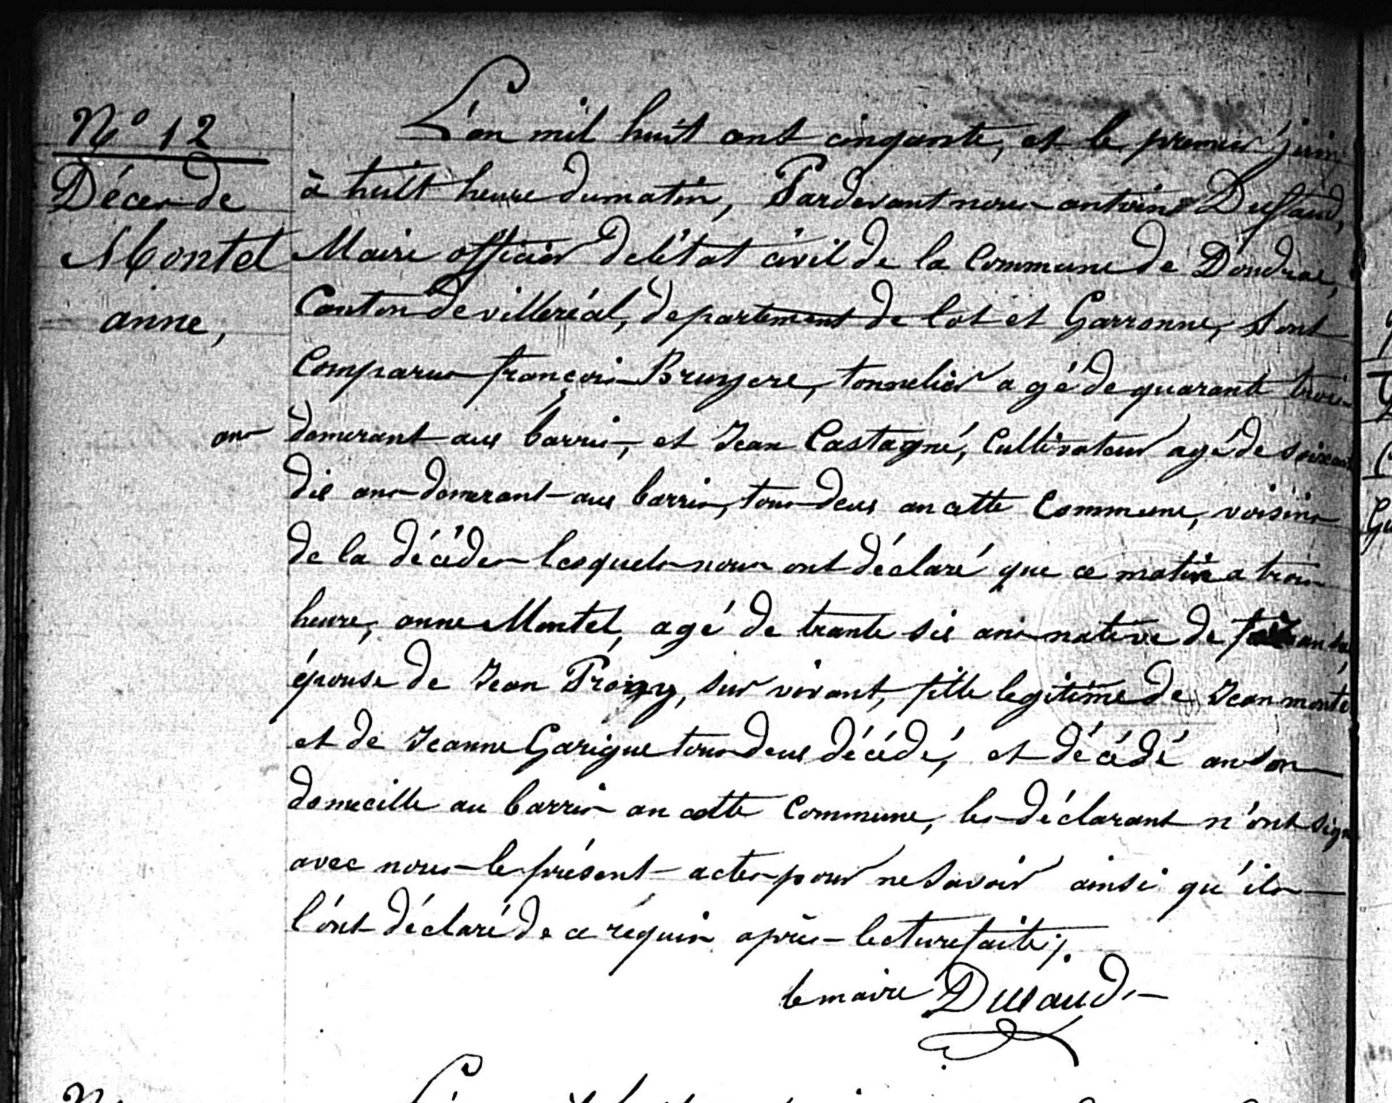 N° 12
Décès de
Montel
anne,
L'an mil huit cent cinqante, et le premier juin
à huit heure du matin, Pardevant nous antoine Dussaud,
Maire officier de l'état civil de la Commune de Doudrac,
Canton de villeréal, departement de lot et Garronne, sont
Comparus françois Bruyere, tonnelier agé de quarante trois
ans demerant aus barris, et Jean Castagné, Cultivateur agé de soixante
dis ans demerant aus barris, tous deus an cette Commune, voisins
de la décédes lesquels nous ont déclaré que ce matin a trois
heure, anne Montel, agé de trante sis ans native de
épouse de Jean sur vivant, fille legitime de Jean montel
et de Jeanne Garigue tous deus décédé, et décédé an son
domicille au barris an cette Commune, les déclarant n'ont signé
avec nous le présent actes pour ne savoir ainsi qu'ils
l'ont déclaré de ce réquis après lecture faite.
le maire Dussaud